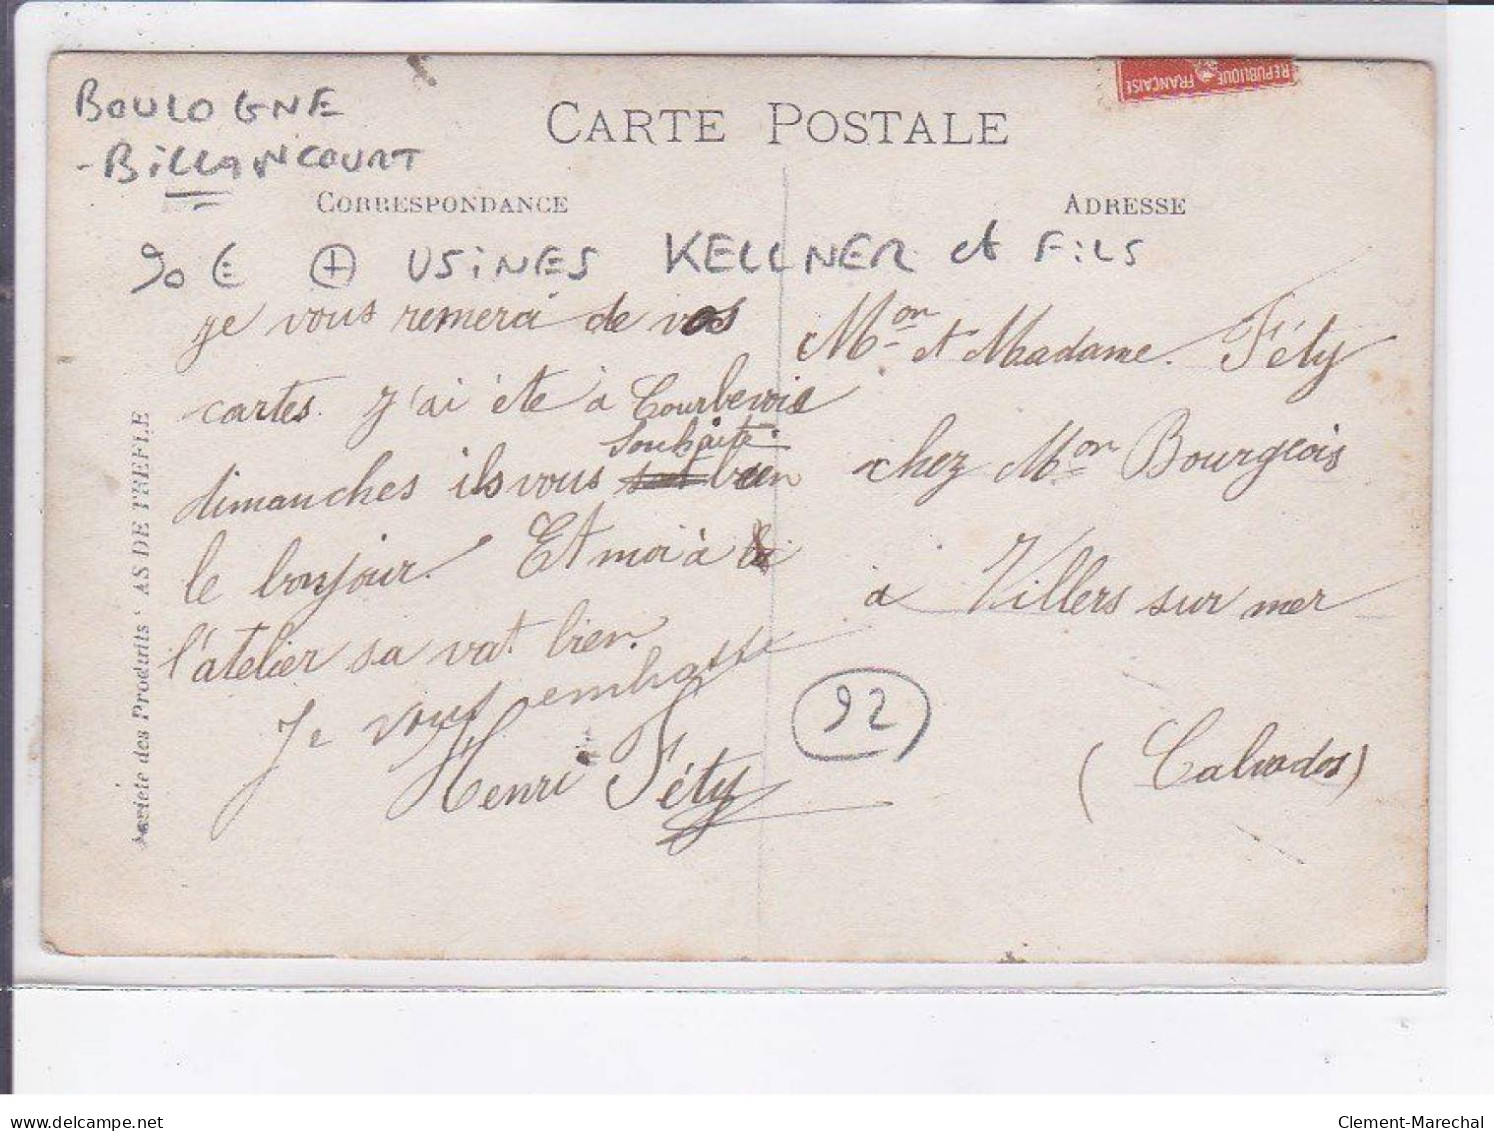 BOULOGNE
-BILLANCOURT
CARTE POSTALE
REPUBLIQUE FRANÇAISE
CORRESPONDANCE
ADRESSE
90 € ⊕ USINES KELLNER et FILS
je vous remerci de vos
cartes. J'ai éte à Courbevoie
dimanches ils vous souhaite bien
le bonjour. Et moi à
l'atelier sa vat bien.
Je vous embrasse
Henri Féty
Mon et Madame. Féty
chez Mon Bourgeois
à Villers sur mer
(Calvados)
92
Societe des Produits "AS DE TREFLE
www.delcampe.net
Clement-Marechal